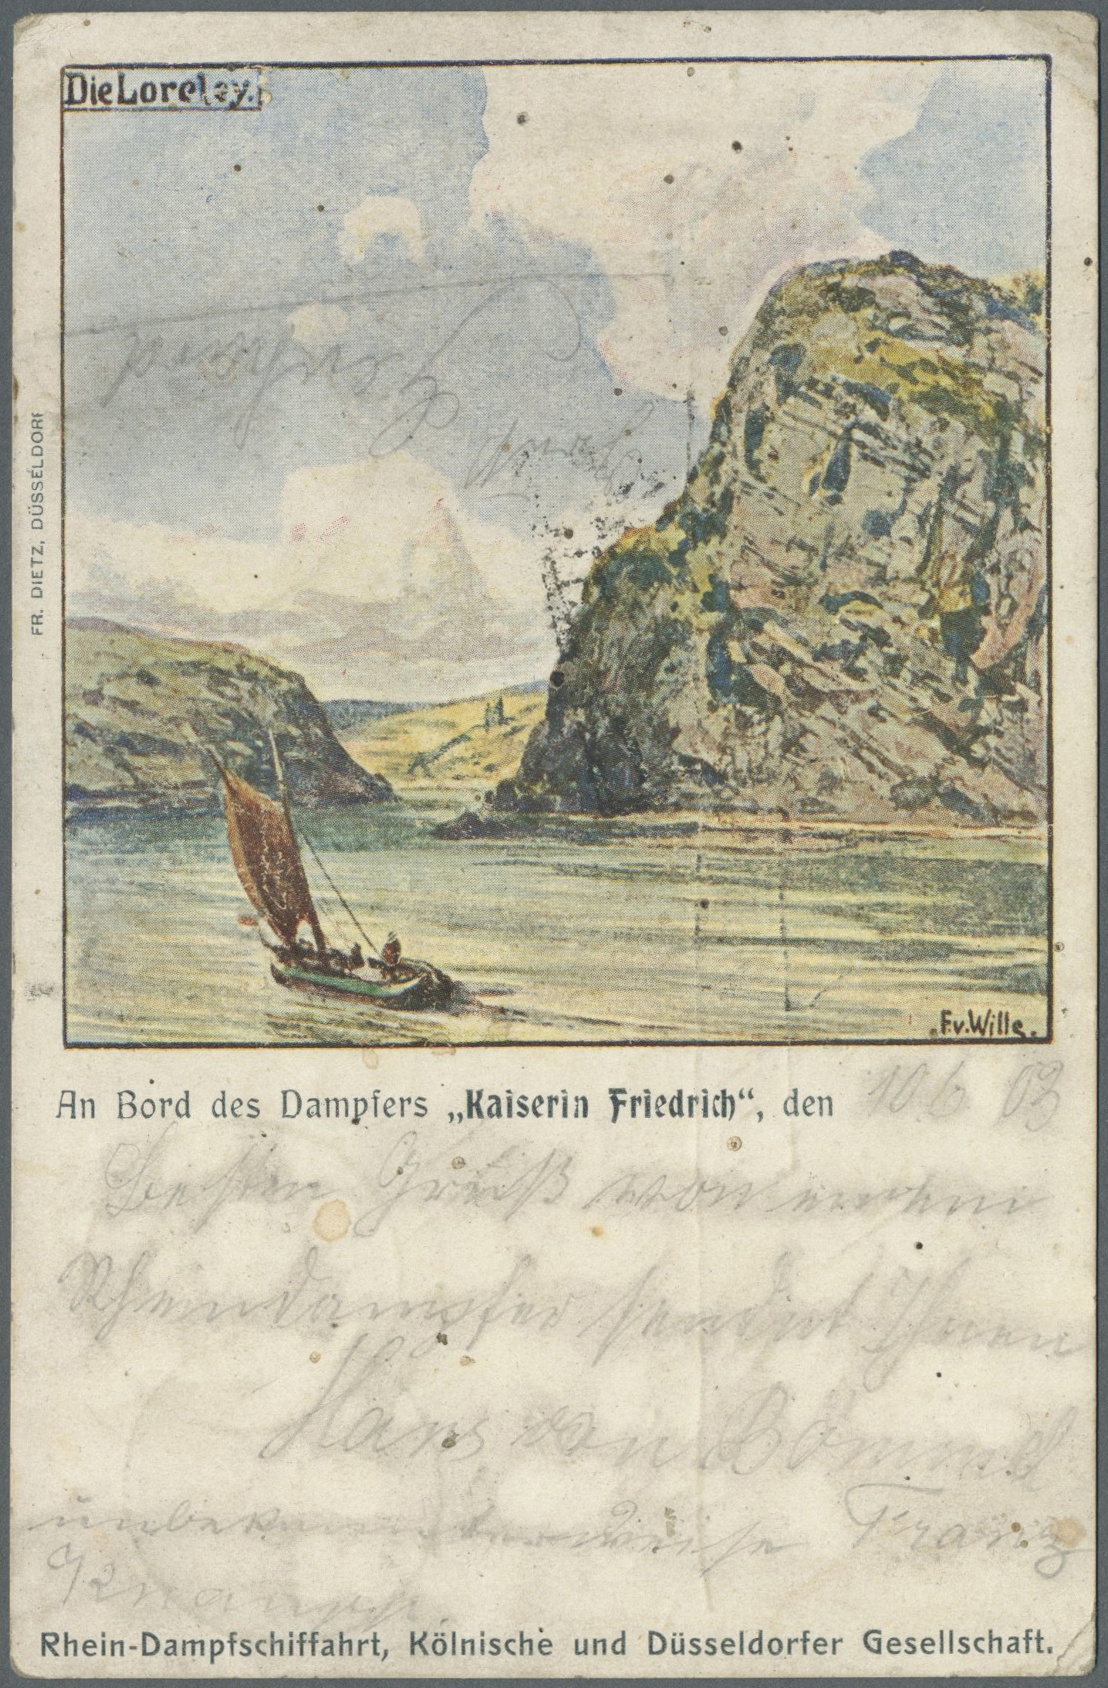 Die Loreley.
FR. DIETZ, DÜSSELDORF
F.v.Wille.
An Bord des Dampfers „Kaiserin Friedrich“, den 10 6 03
Besten Gruß von einem
Rheindampfer sendet Ihnen
Hans von Bömmel
unbekannterweise Franz
Rhein-Dampfschiffahrt, Kölnische und Düsseldorfer Gesellschaft.